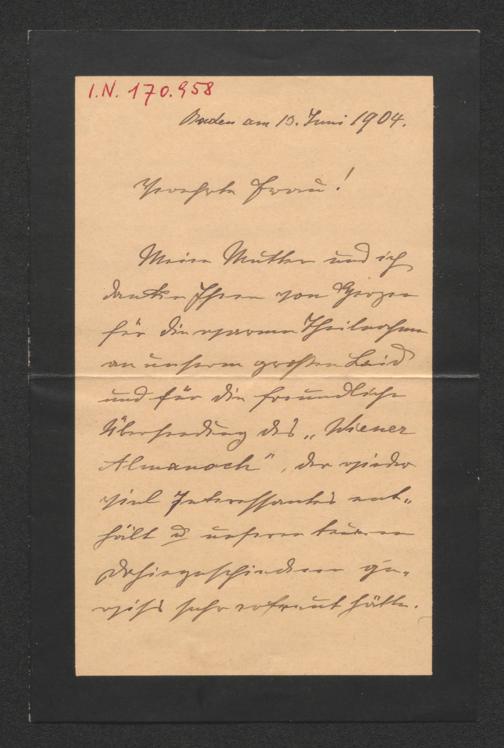 I.N. 170.958
Baden am 13. Juni 1904.
Verehrte Frau!
Meine Mutter und ich
danken Ihnen von Herzen
für die warme Theilnahme
an unserm großen Leid
und für die freundliche
Übersendung des „Wiener
Almanach", der wieder
viel Interessantes ent-
hält u unseren teuren
Dahingeschiedenen ge-
wiß sehr erfreut hätte.